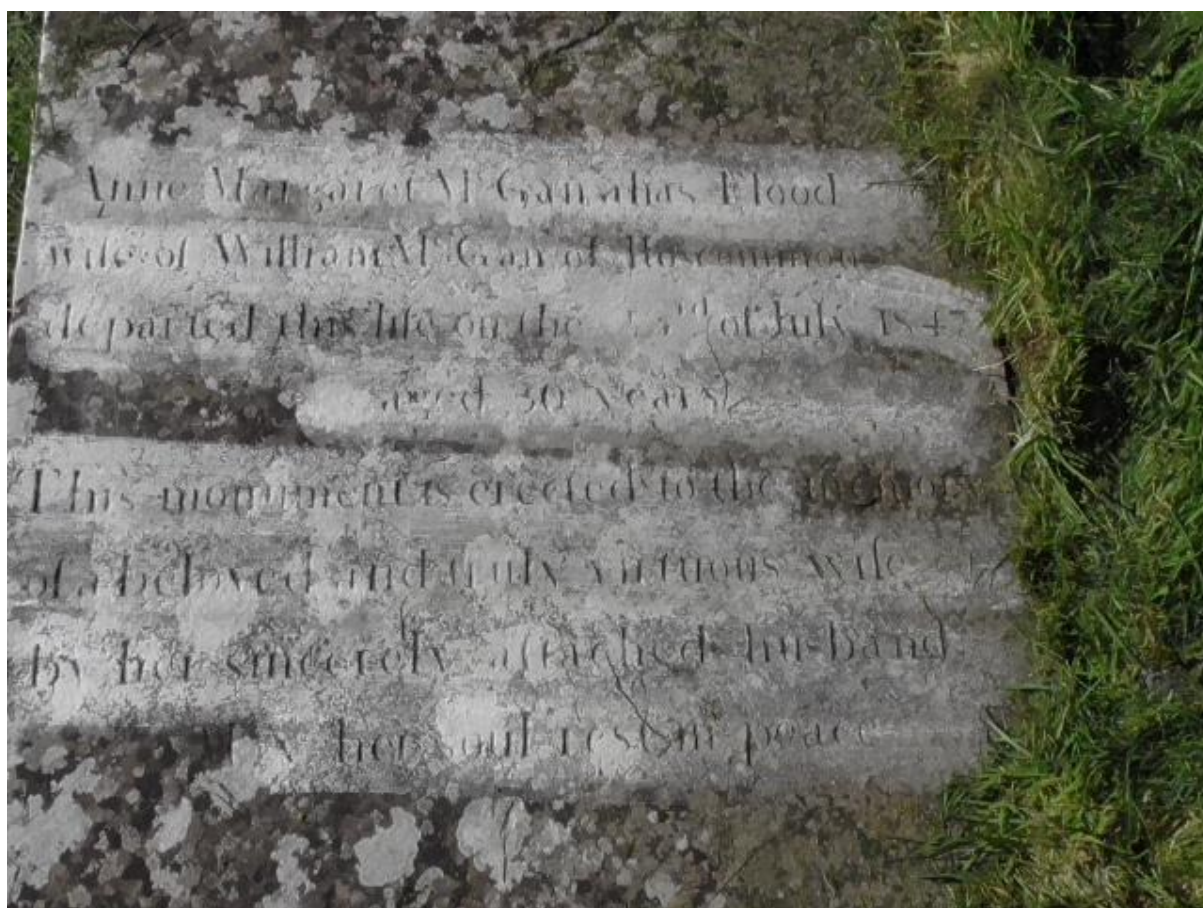 Anne Margaret McGan alias Flood
wife of William McGan of Roscommon
departed this life on the of July 184
aged 30 years
This monument is erected to the memory
of a beloved and truly virtuous wife
by her sincerely attached husband
May her soul rest in peace